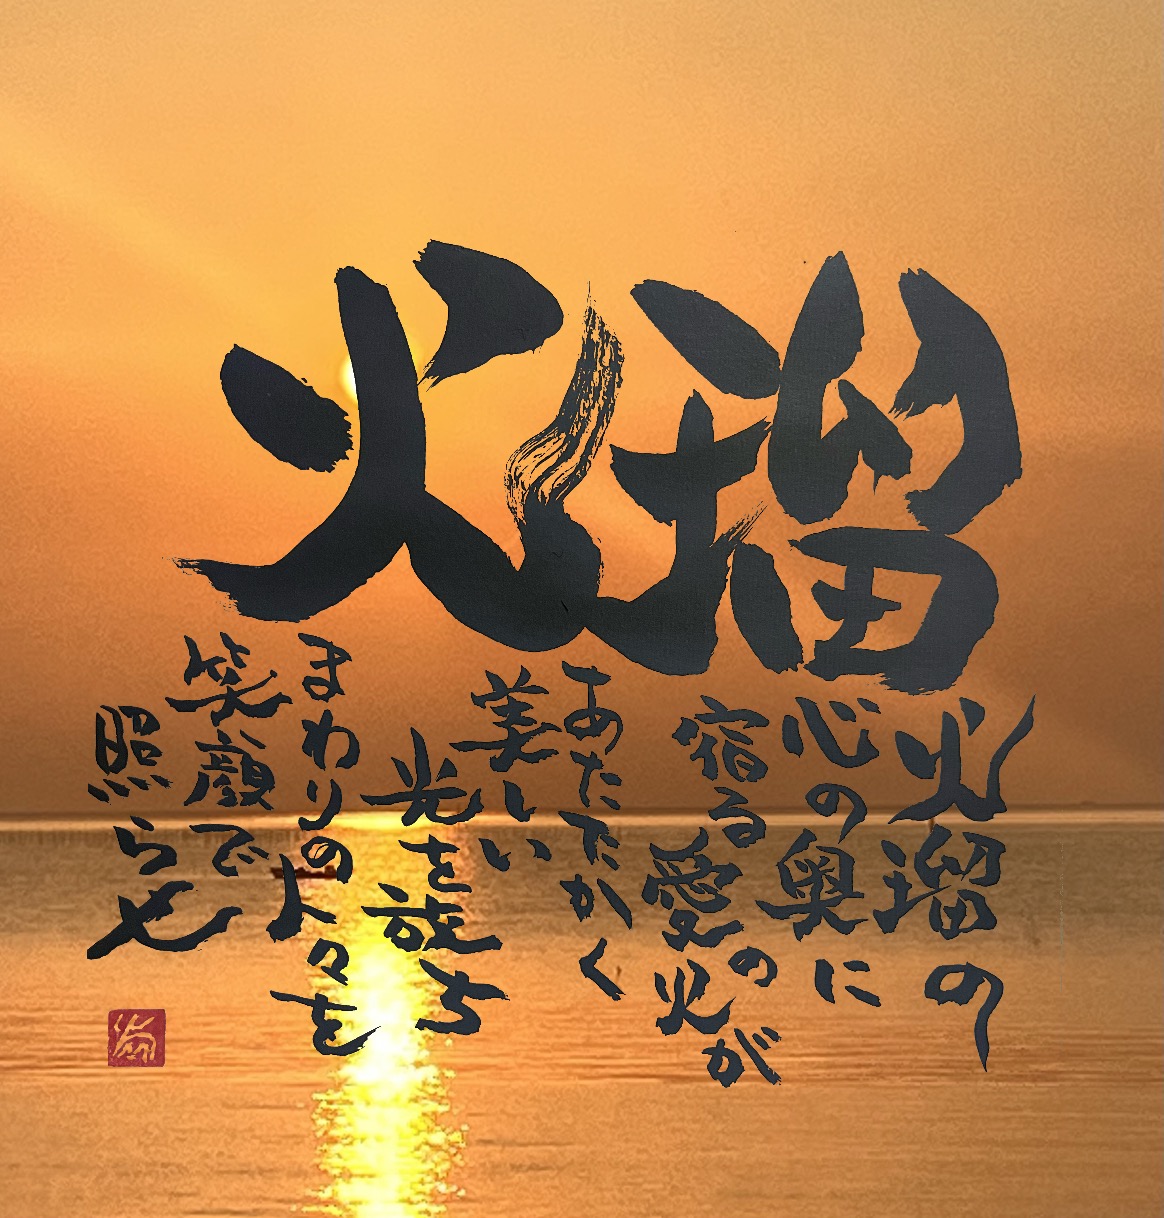 火瑠
火瑠の
心の奥に
宿る愛の火が
あたたかく
美しい
光を放ち
まわりの人々を
笑顔で
照らせ